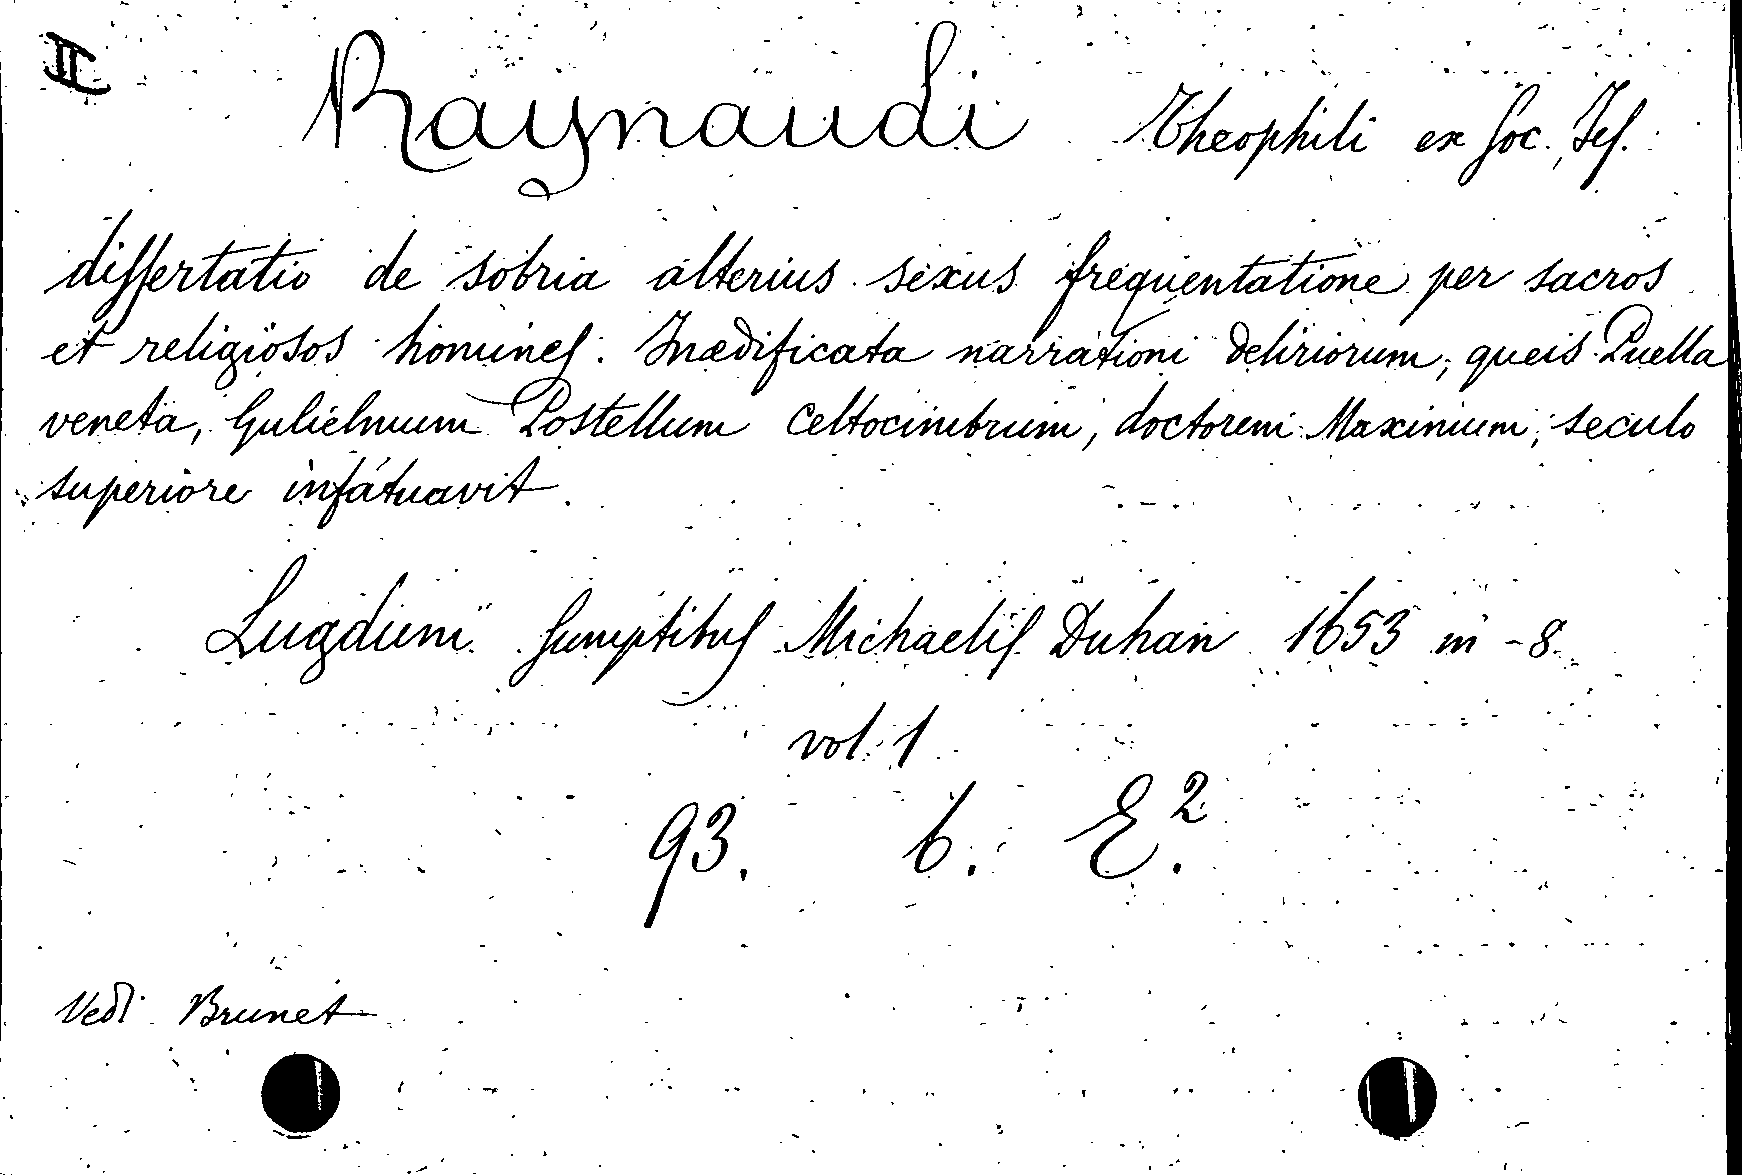 II Raynaudi Theophili ex Soc. Jes.
dissertatio de sobria alterius sexus frequentatione per sacros
et religiosos homines. Inædificata narrationi deliriorum, queis Puella
veneta, Gulielmum Postellum Celtocimbrum, doctorem Maximum, seculo
superiore infatuavit.
Lugduni Sumptibus Michaelis Duhan 1653 in-8
vol. 1
93. 6. E.²
Vedi Brunet